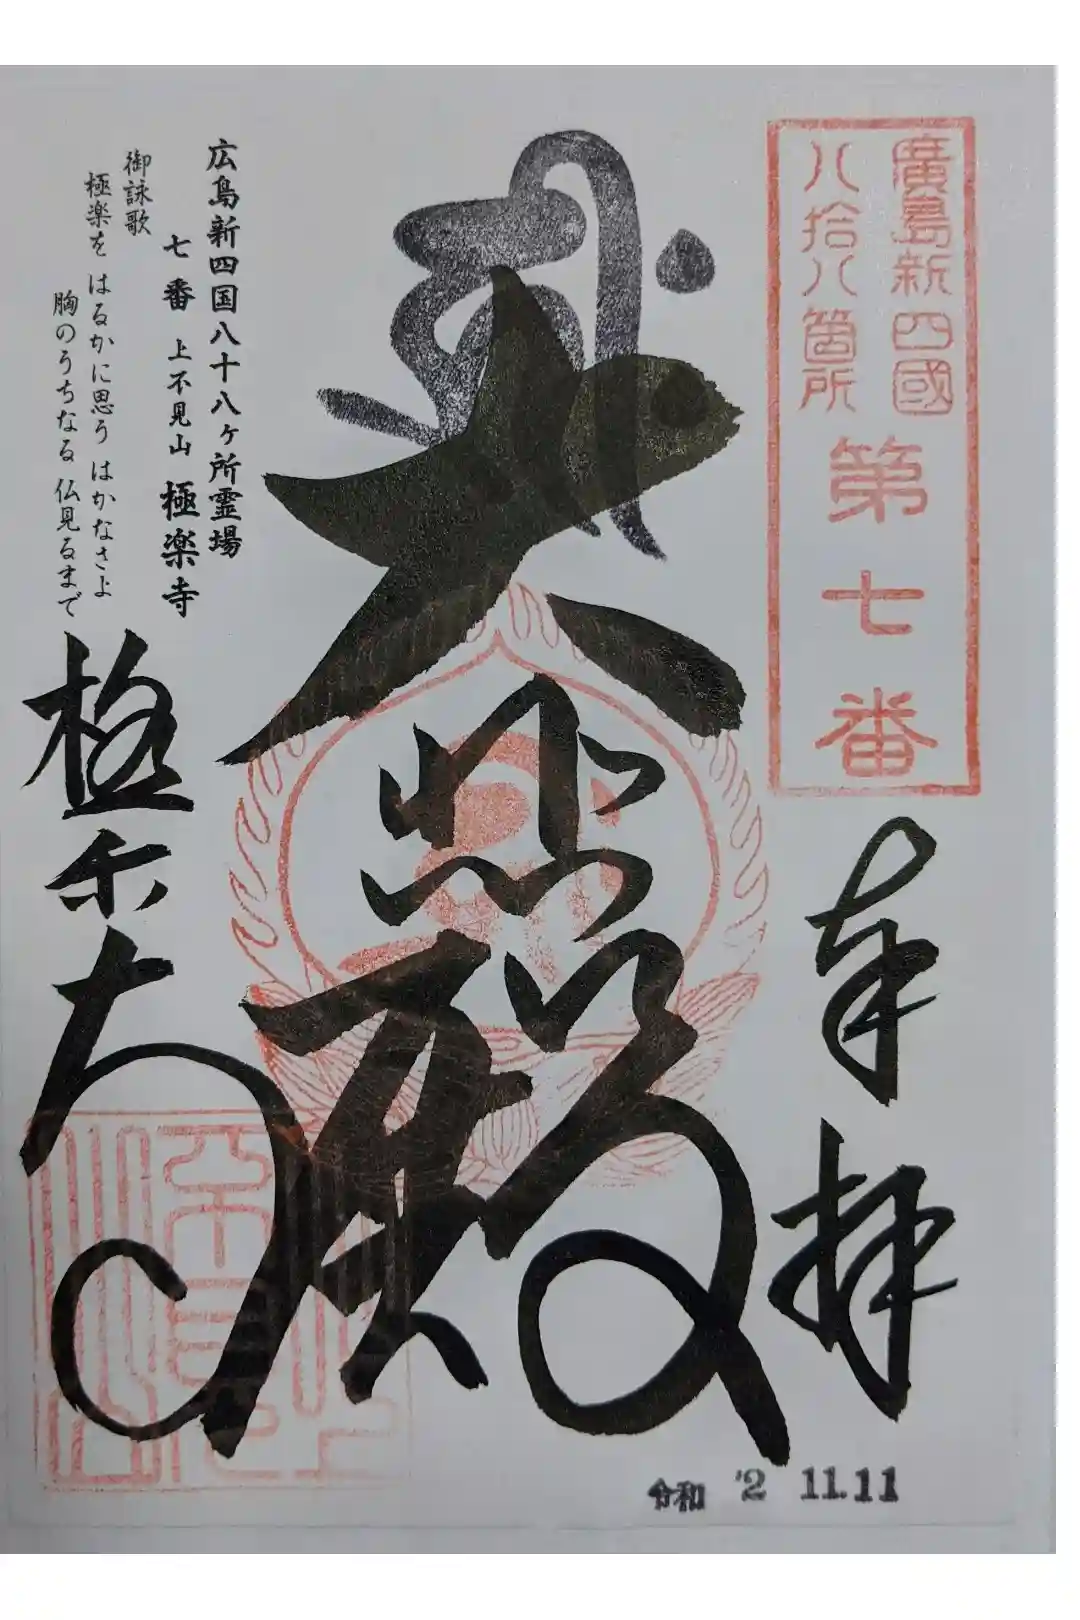 廣島新四國
八拾八箇所
第七番
奉拝
大悲殿
極楽寺
広島新四国八十八ヶ所霊場
七番 上不見山 極楽寺
御詠歌
極楽を はるかに思う はかなさよ
胸のうちなる 仏見るまで
令和 '2 11.11